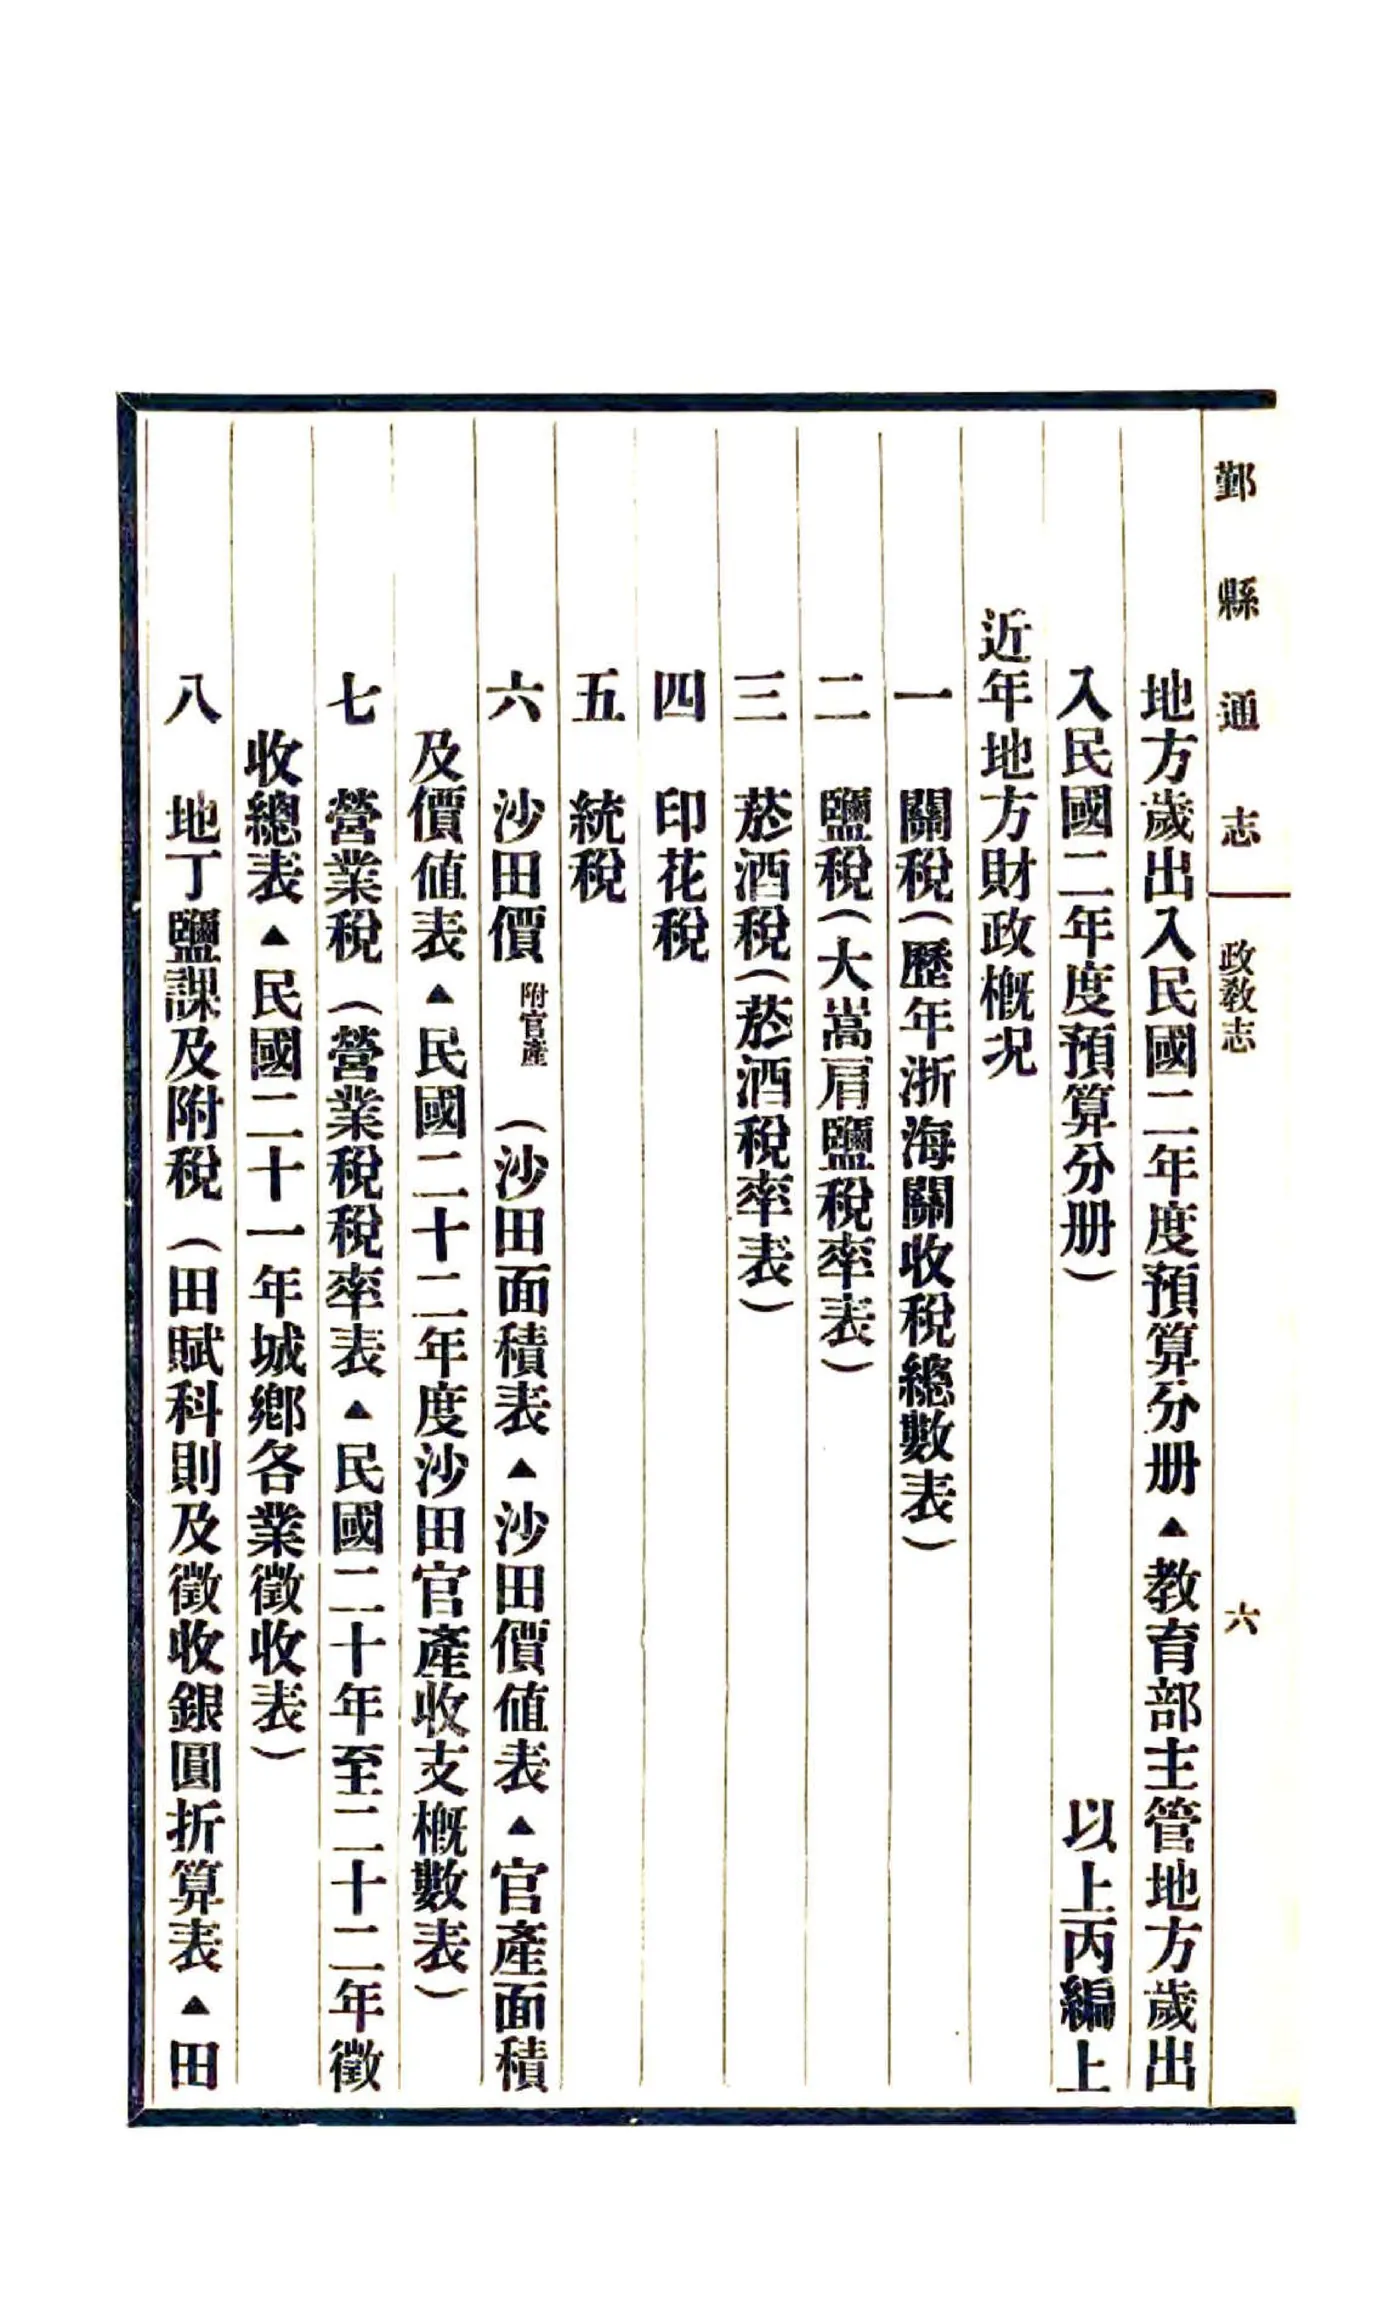 鄞縣通志 政敎志 六
地方歲出入民國二年度預算分册▲敎育部主管地方歲出
入民國二年度預算分册） 以上丙編上
近年地方財政槪況
一 關稅（歷年浙海關收稅總數表）
二 鹽稅（大嵩肩鹽稅率表）
三 菸酒稅（菸酒稅率表）
四 印花稅
五 統稅
六 沙田價附官產（沙田面積表▲沙田價值表▲官產面積
及價值表▲民國二十二年度沙田官產收支槪數表）
七 營業稅（營業稅稅率表▲民國二十年至二十二年徵
收總表▲民國二十一年城鄉各業徵收表）
八 地丁鹽課及附稅（田賦科則及徵收銀圓折算表▲田